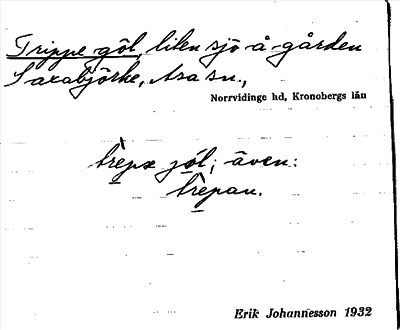 Trippe göl, liten sjö å gården
Saxabjörke, Asa sn.,
Norrvidinge hd, Kronobergs län
trèpə gö́l; även:
trèpan.
Erik Johannesson 1932